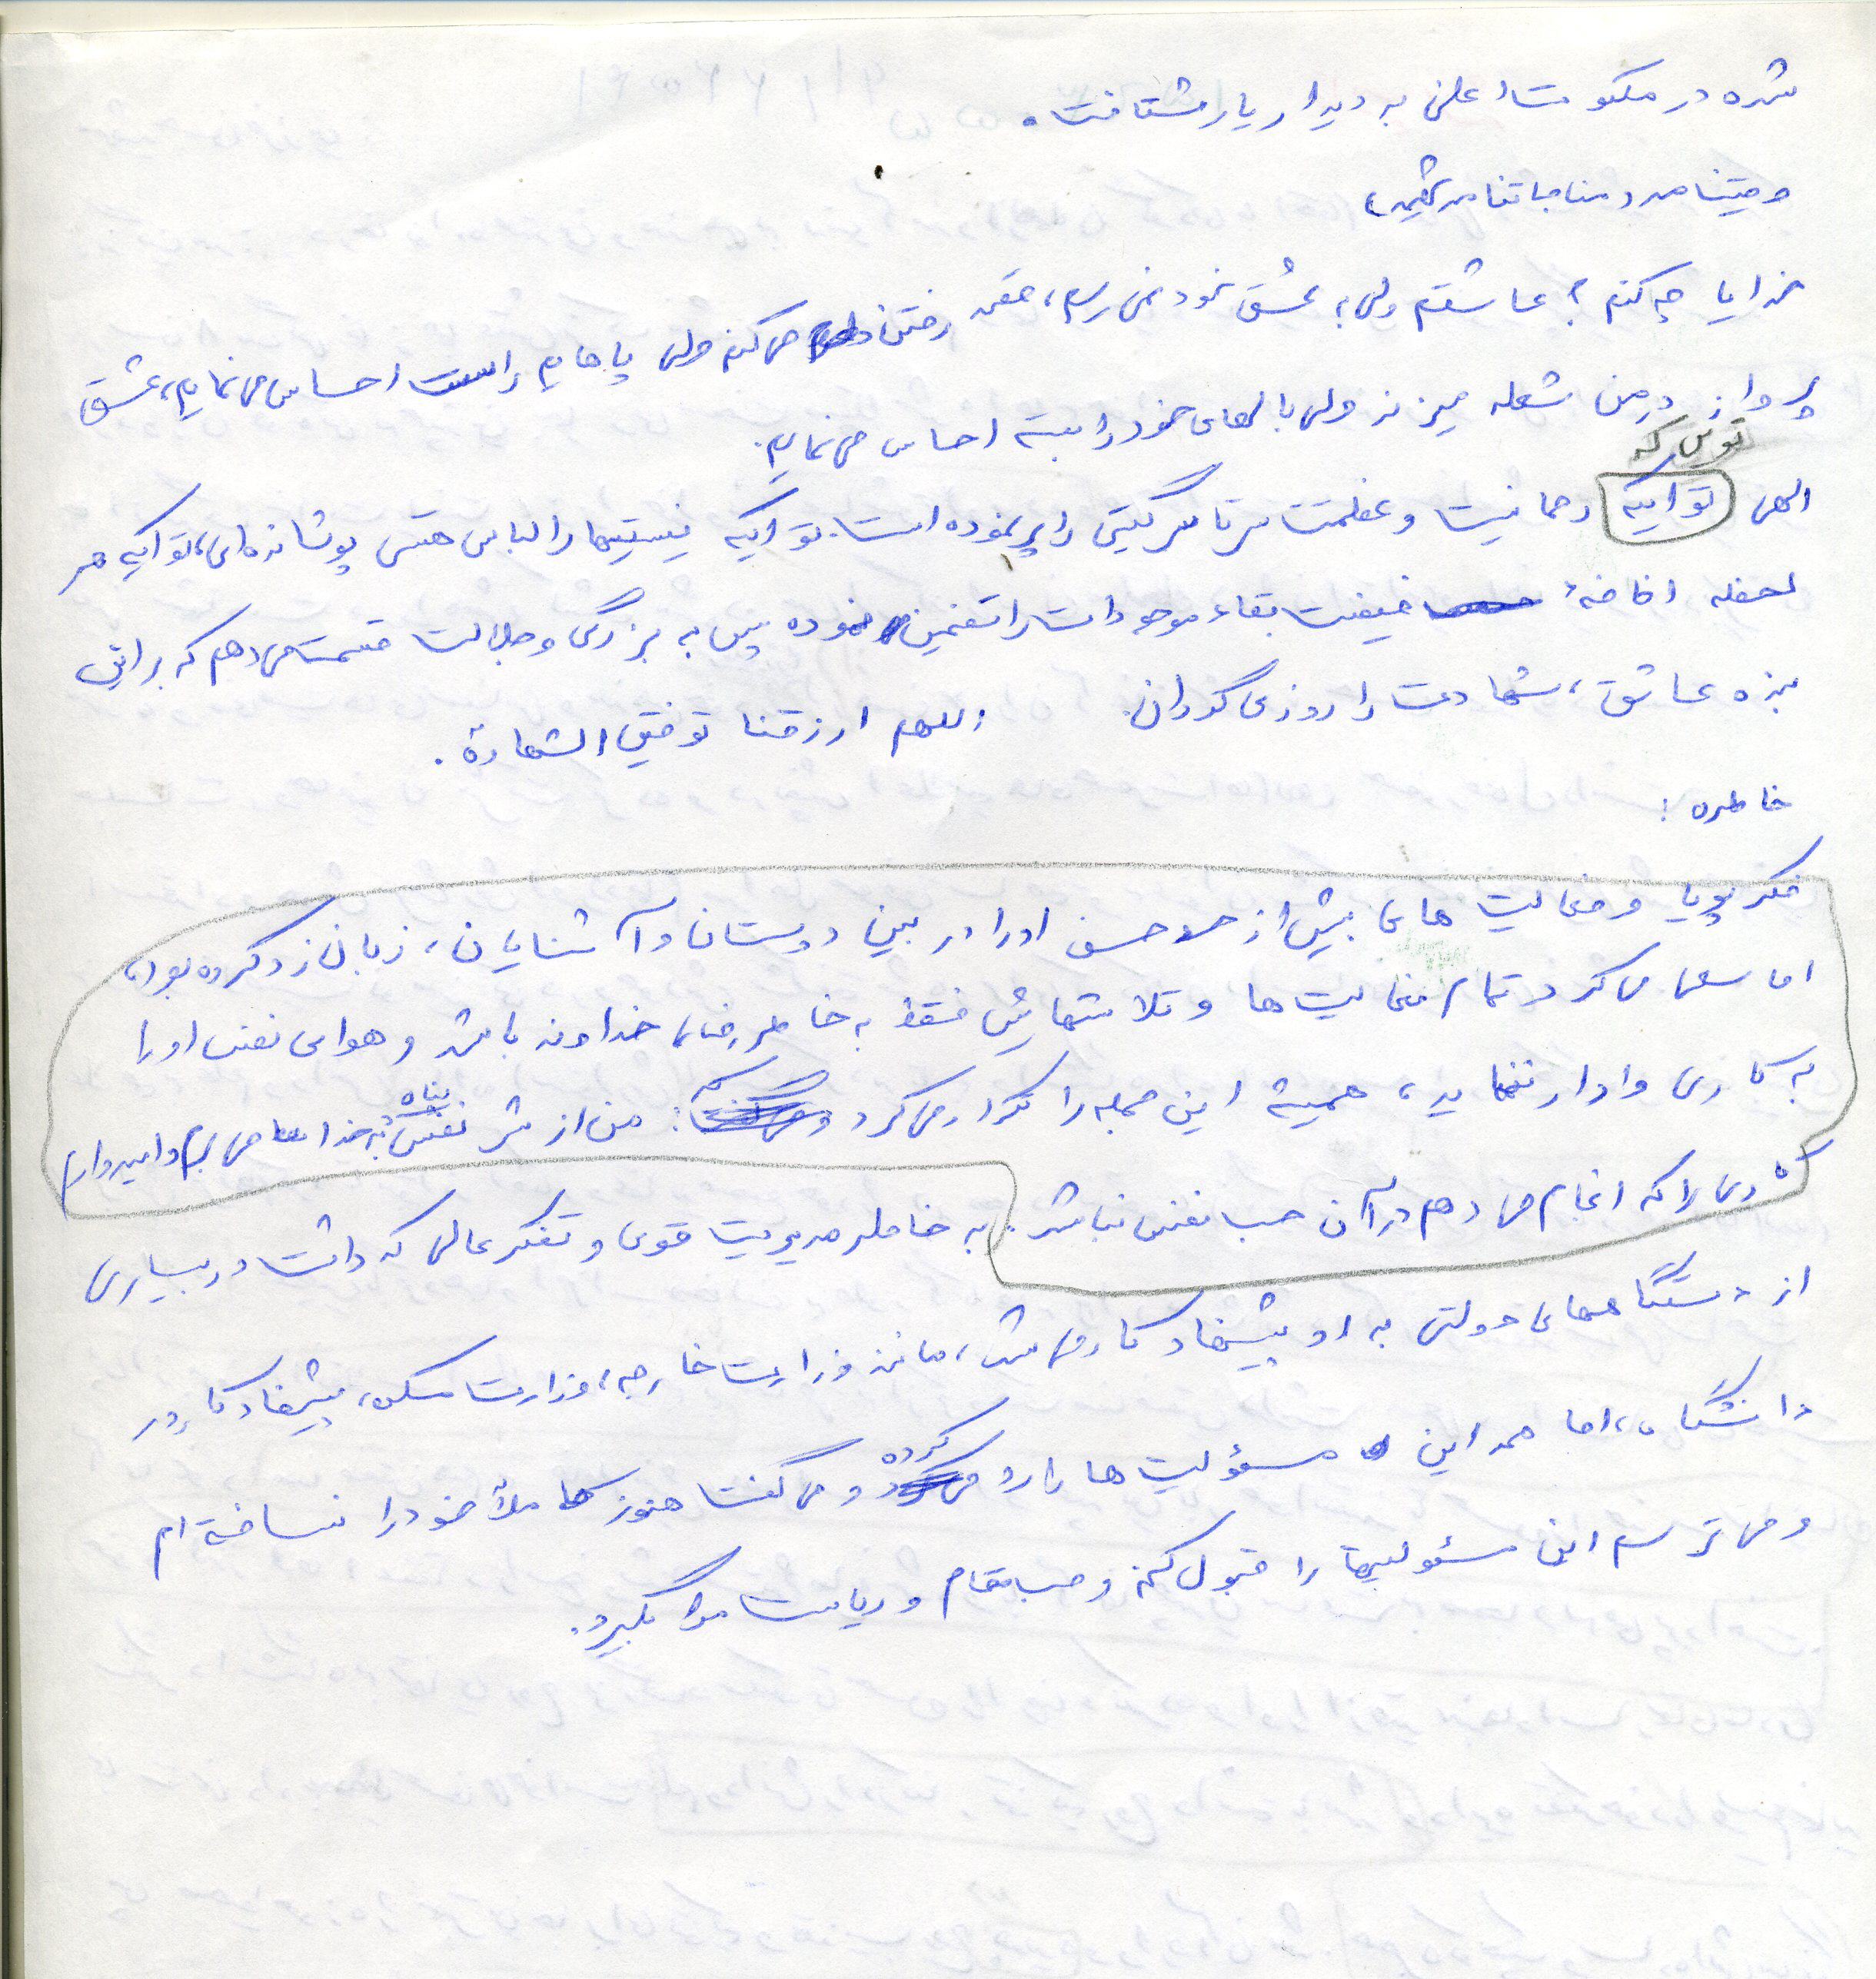 شده در ملکوت اعلی به دیدار یار شتافت.
خدایا چه کنم؟ عاشقم ولی به عشق خود نمی رسم، قصد رفتن می کنم ولی پاهایم را سست احساس می نمایم، عشق
پرواز در من شعله میزند ولی بالهای خود را بسته احساس می نمایم.
توئی که
الهی تو ایکه رحمانیت و عظمتت سرتاسر گیتی را پر نموده است. تو ایکه نیستیها را لباس هستی پوشانده ای، تو ایکه هر
لحظه افاضهٔ فیضت بقاء موجودات را تضمین نموده پس به بزرگی و جلالت قسمت می دهم که بر این
بنده عاشق، شهادت را روزی گردان. اللهم ارزقنا توفیق الشهادة.
خاطره:
فکر پویا و فعالیت های بیش از حد حسن او را در بین دوستان و آشنایان، زبان زد کرده بود،
اما سعی می کرد تمام فعالیت ها و تلاشهایش فقط به خاطر رضای خداوند باشد و هوای نفس او را
به کاری وادار ننماید، همیشه این جمله را تکرار می کرد که: من از شر نفس به خدا پناه می برم و امیدوارم
کاری را که انجام می دهم در آن حب نفس نباشد. به خاطر مدیریت قوی و تفکر عالی که داشت در بسیاری
از دستگاههای دولتی به او پیشنهاد کار می شد، مانند وزارت خارجه، وزارت مسکن، پیشنهاد کار در
دانشگاه، اما همه این مسؤلیت ها را رد کرده و می گفت هنوز کاملاً خود را نساخته ام
و می ترسم این مسئولیتها را قبول کنم و حب مقام و ریاست مرا بگیرد.